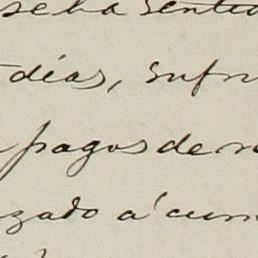 se ha sentido
días, sufri
pagos de m
zado á cum